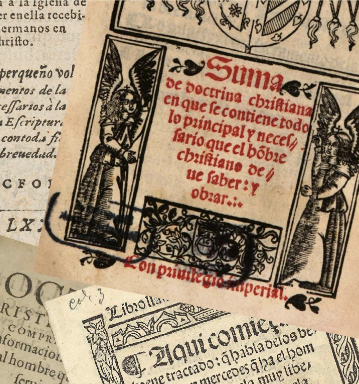 a la Iglesia de
er enella recebi-
ermanos en
hristo.
perqueño vol
mentos de la
cessarios à la
a Escriptura
contoda fi
breuedad.
C F O
L X
Suma
de doctrina christiana
en que se contiene todo
lo principal y neces//
sario que el hōbre
christiano de//
ue saber: y
obrar.:.
Con priuilegio imperial.
OC
RIST
COMPR
formacion
l hombre q
Libro lla
Aqui comiēç
ene tractado: q̄ habla de los be
mercedes q̄ ha el hom